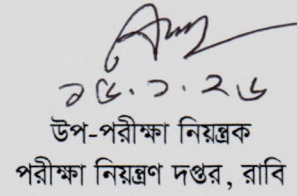 ২৫.১.২৬
উপ-পরীক্ষা নিয়ন্ত্রক
পরীক্ষা নিয়ন্ত্রণ দপ্তর, রাবি